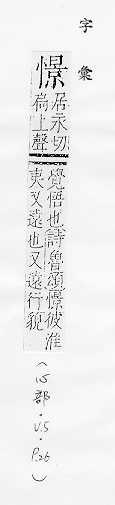 字彙
憬
居永切
扃上聲
覺悟也詩魯頌憬彼淮
夷又遠也又遠行貌
(心部·V.5·P.26)